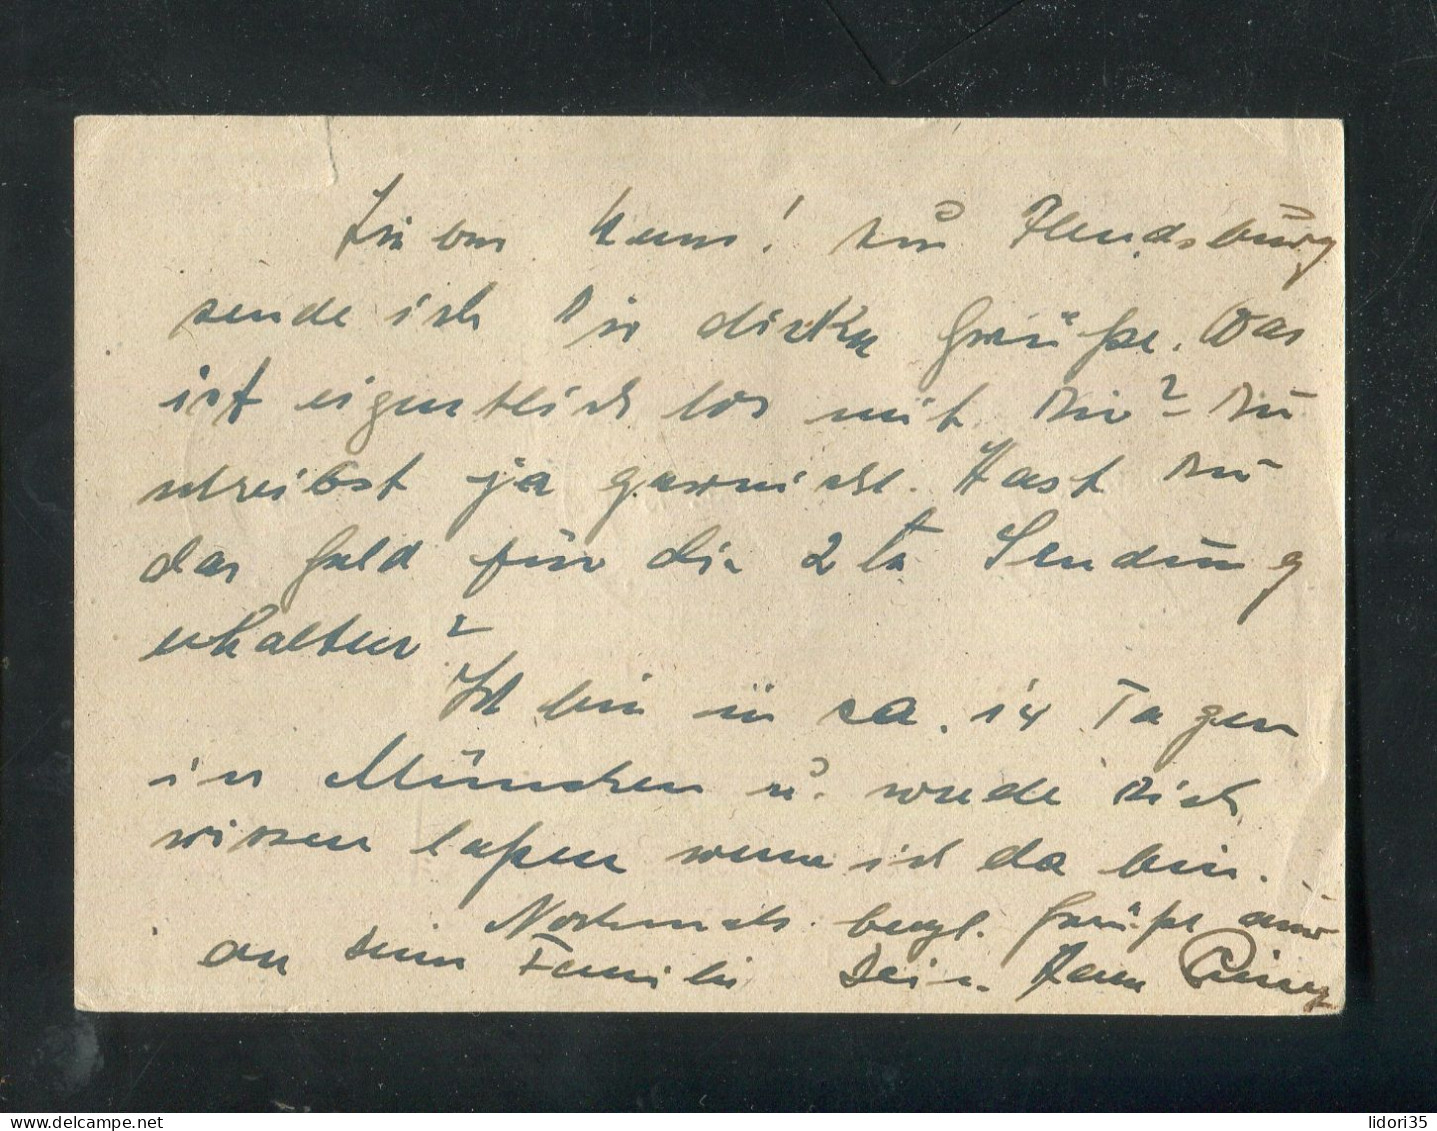 Lieber Hans! Aus Flensburg
sende ich Dir Grüße. Was
ist eigentlich los mit Dir? Du
schreibst ja garnicht. Hast Du
das Geld für die 2te Sendung
erhalten?
Ich bin in ca. 14 Tagen
in München u. werde Dich
wissen laßen wenn ich da bin.
Nochmals herzl. Grüße auch
an Deine Familie Dein
lidori35